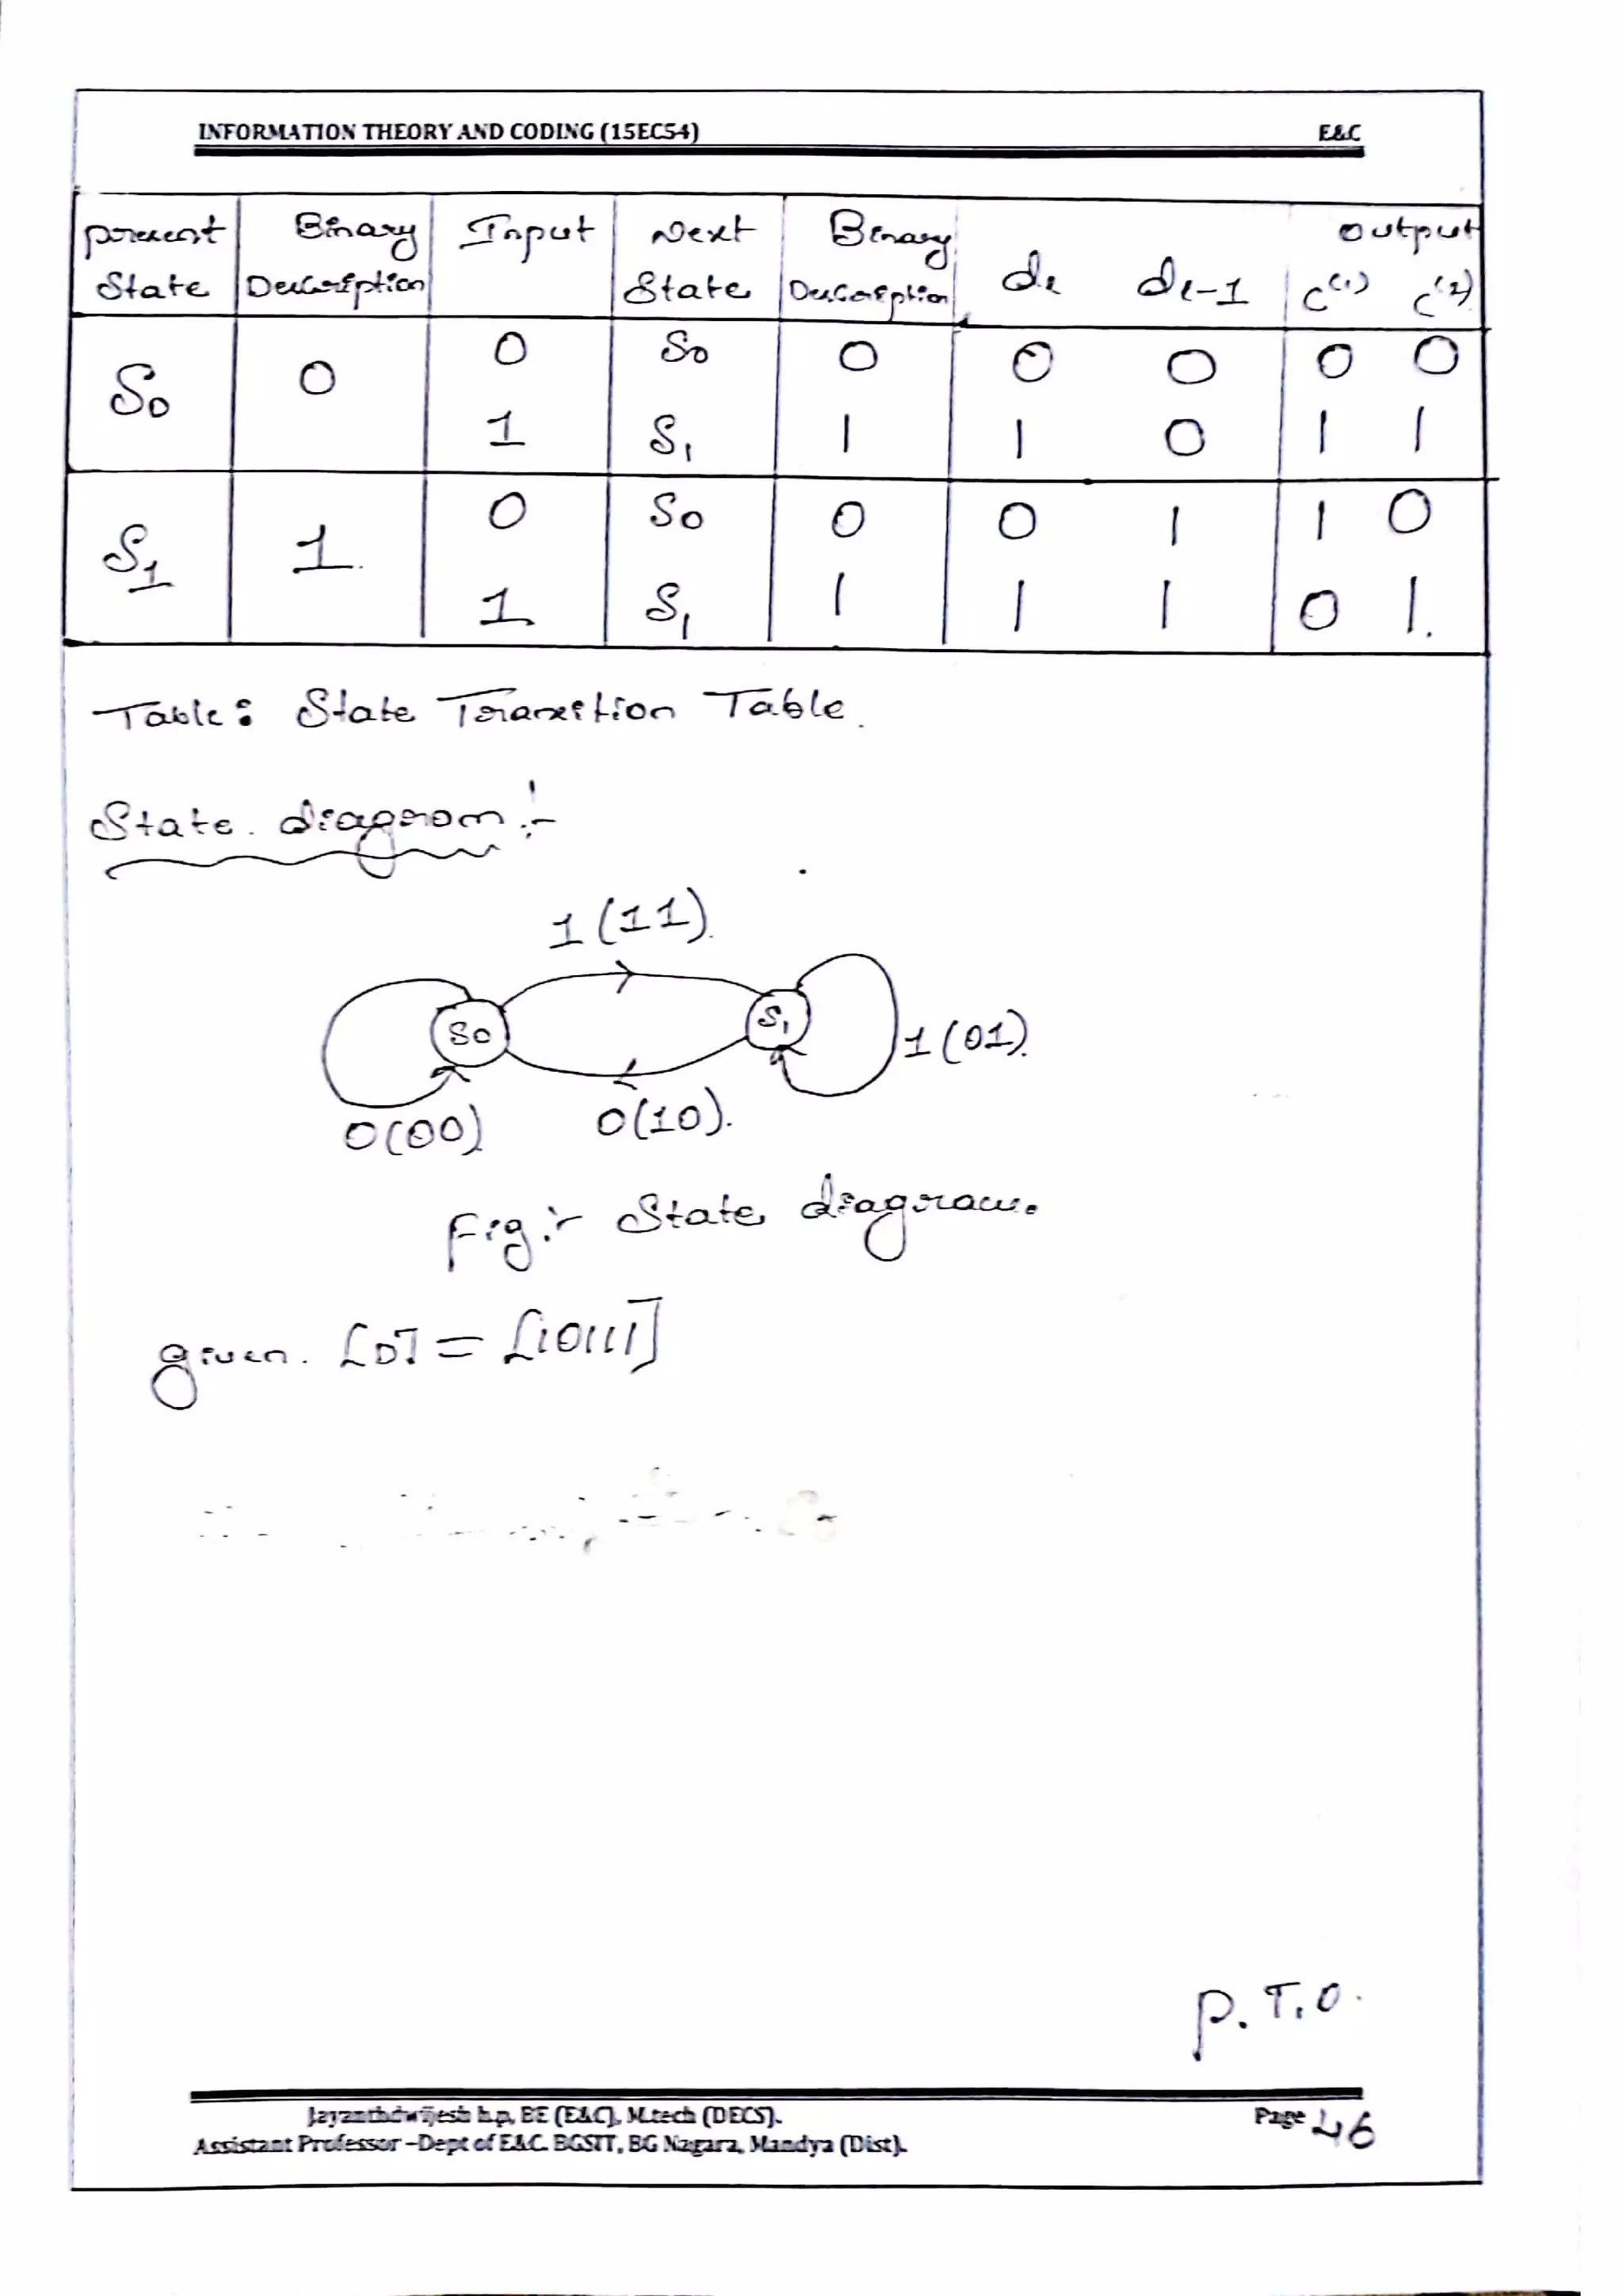 INFORMATION THEORY AND CODING (15EC54) E&C
present State | Binary Description | Input | Next State | Binary Description | dℓ | dℓ-1 | output c⁽¹⁾ c⁽²⁾
S0 | 0 | 0 | S0 | 0 | 0 | 0 | 0 0
1 | S1 | 1 | 1 | 0 | 1 1
S1 | 1 | 0 | S0 | 0 | 0 | 1 | 1 0
1 | S1 | 1 | 1 | 1 | 0 1.
Table: State Transition Table.
State diagram :-
1 (11).
S0
S1
1 (01).
0(00)
0(10).
Fig :- State diagram.
given. [D] = [10111]
P.T.O.
Jayanthdwijesh h.p, BE (E&C), M.tech (DECS).
Assistant Professor –Dept of E&C. BGSIT, BG Nagara, Mandya (Dist).
Page 46